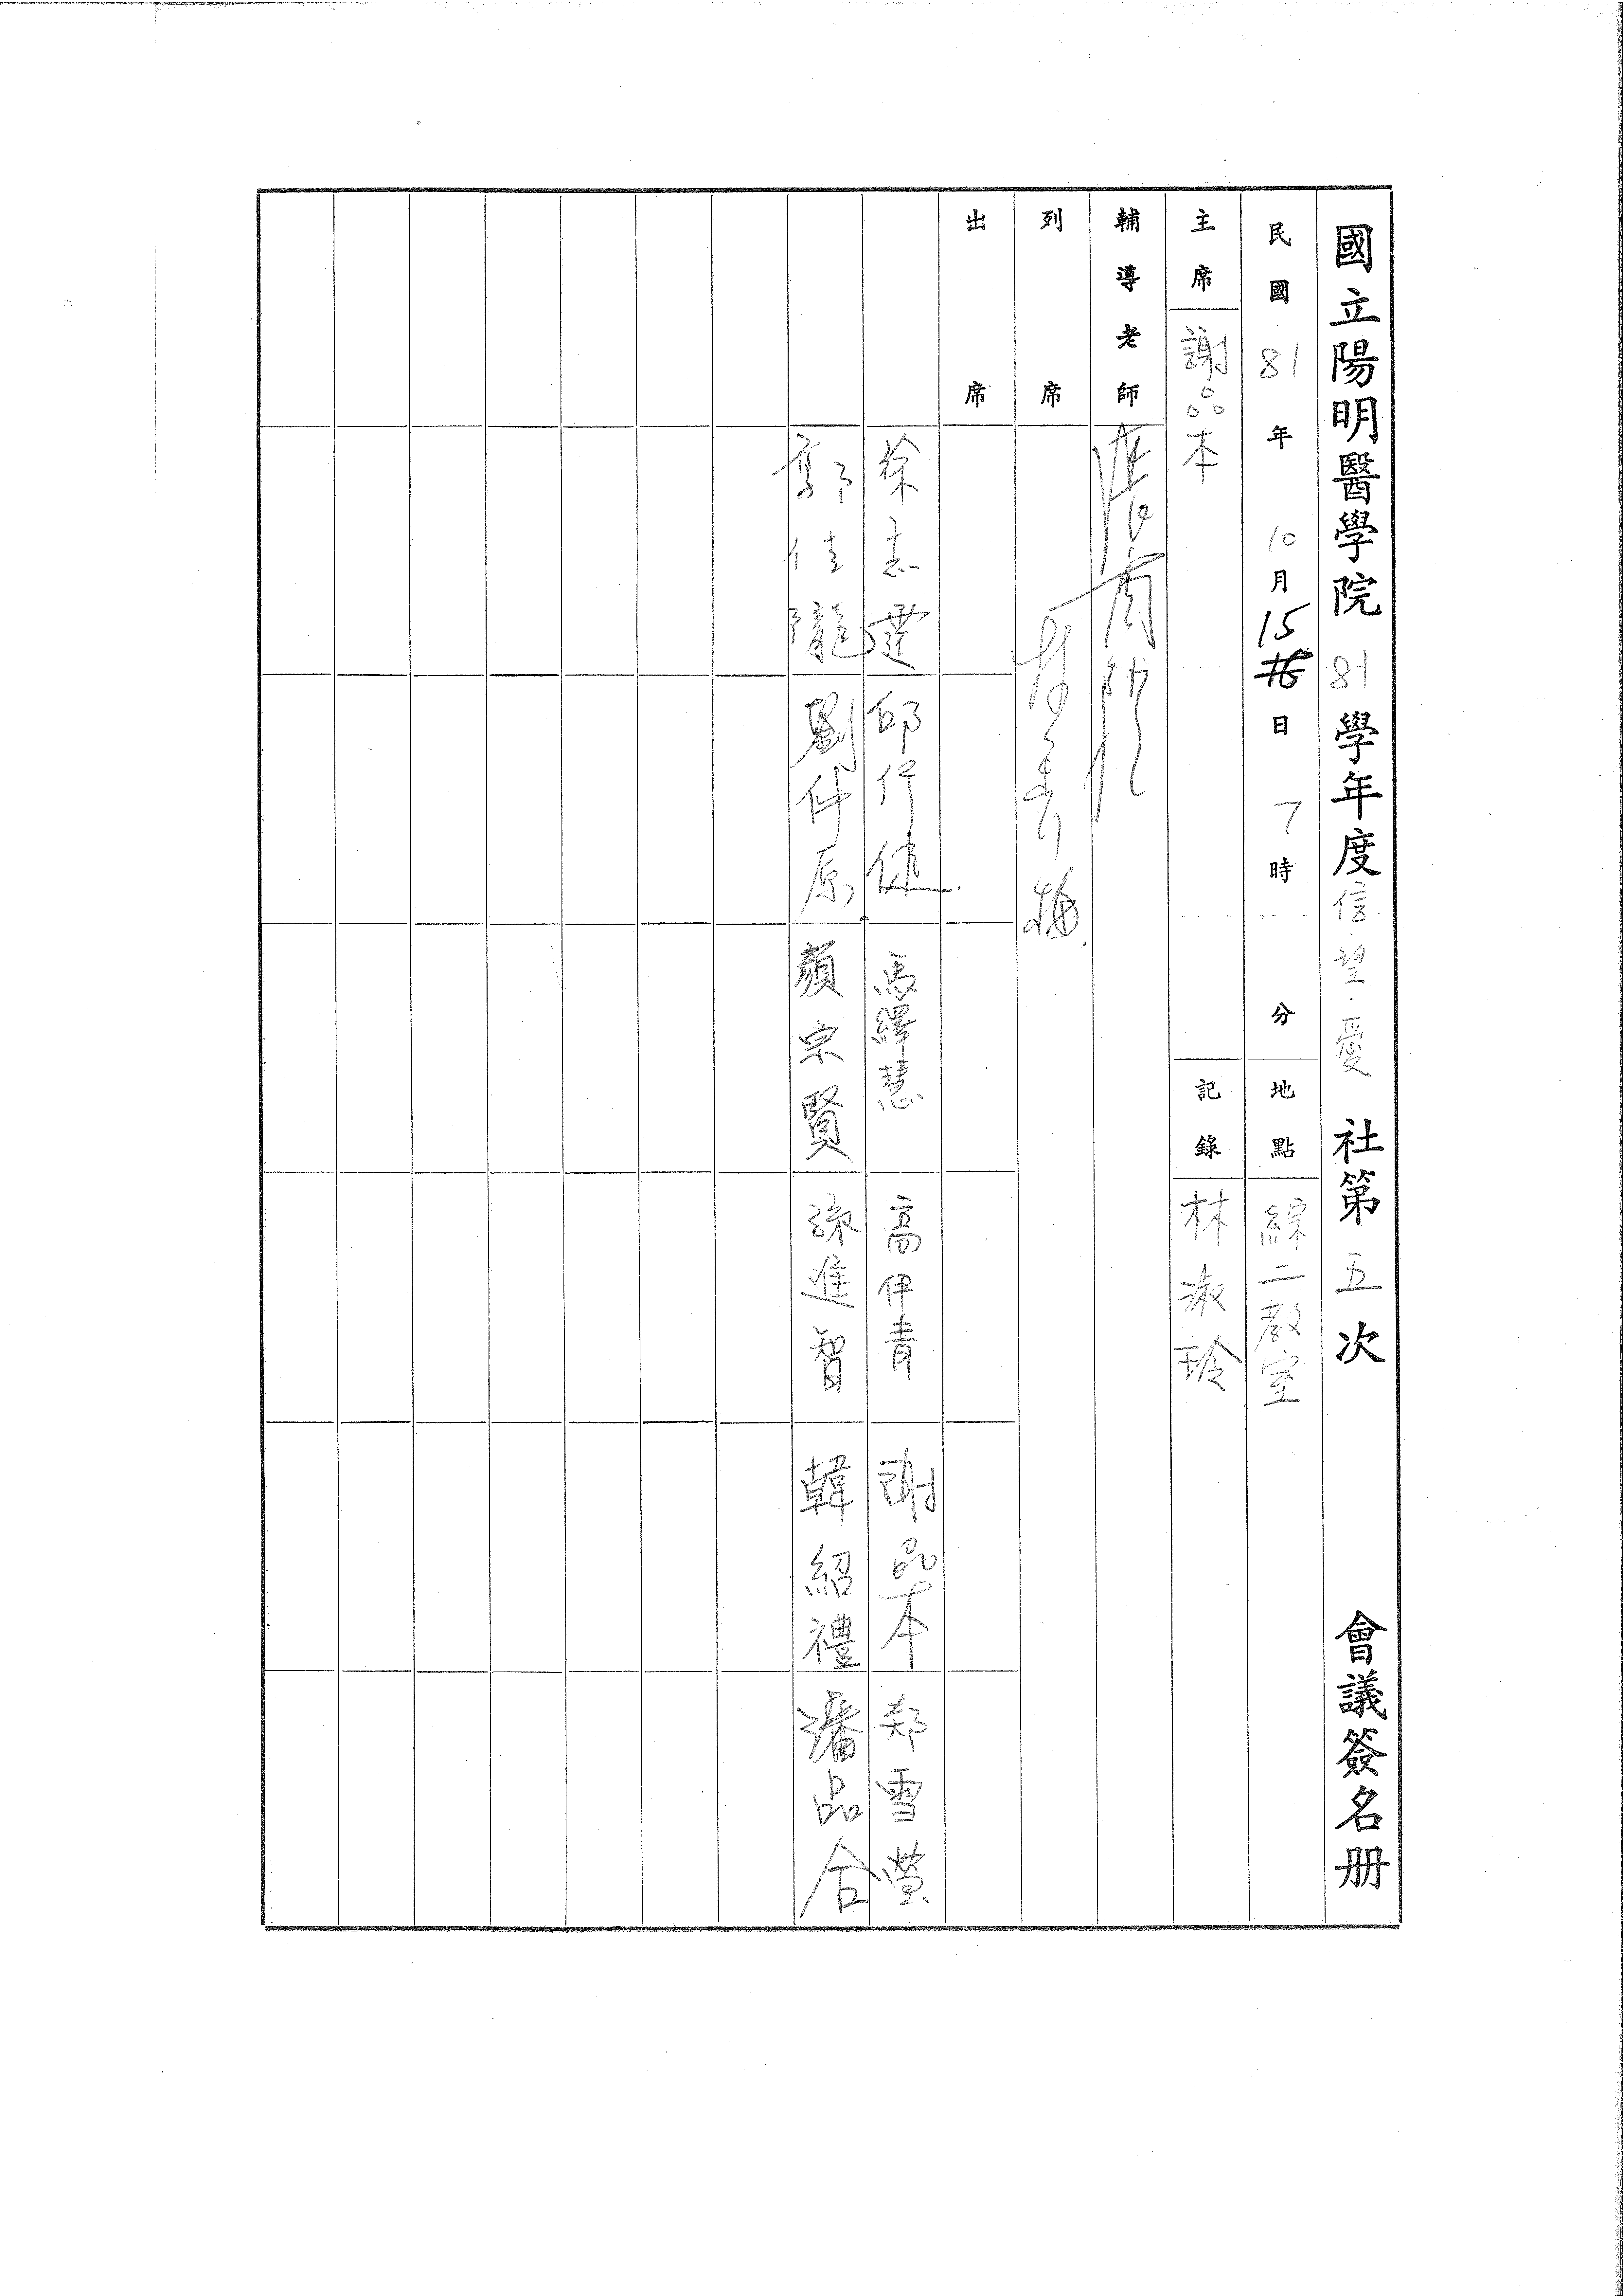 國立陽明醫學院 81 學年度 信.望.愛 社第 五 次 會議簽名册
民國 81 年 10 月 15 日 7 時 分 地點 綜二教室
主席 謝品本 記錄 林淑玲
輔導老師
列席
出席
徐志 邱行健 馬繹慧 高伊青 謝品本 鄭雪瑩
郭佳隴 劉仲原 顏宗賢 孫進智 韓紹禮 潘品合